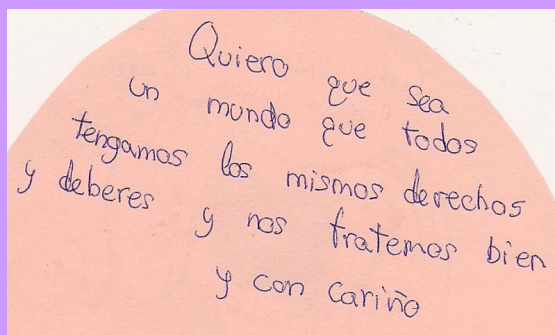 Quiero que sea
un mundo que todos
tengamos los mismos derechos
y deberes y nos tratemos bien
y con cariño